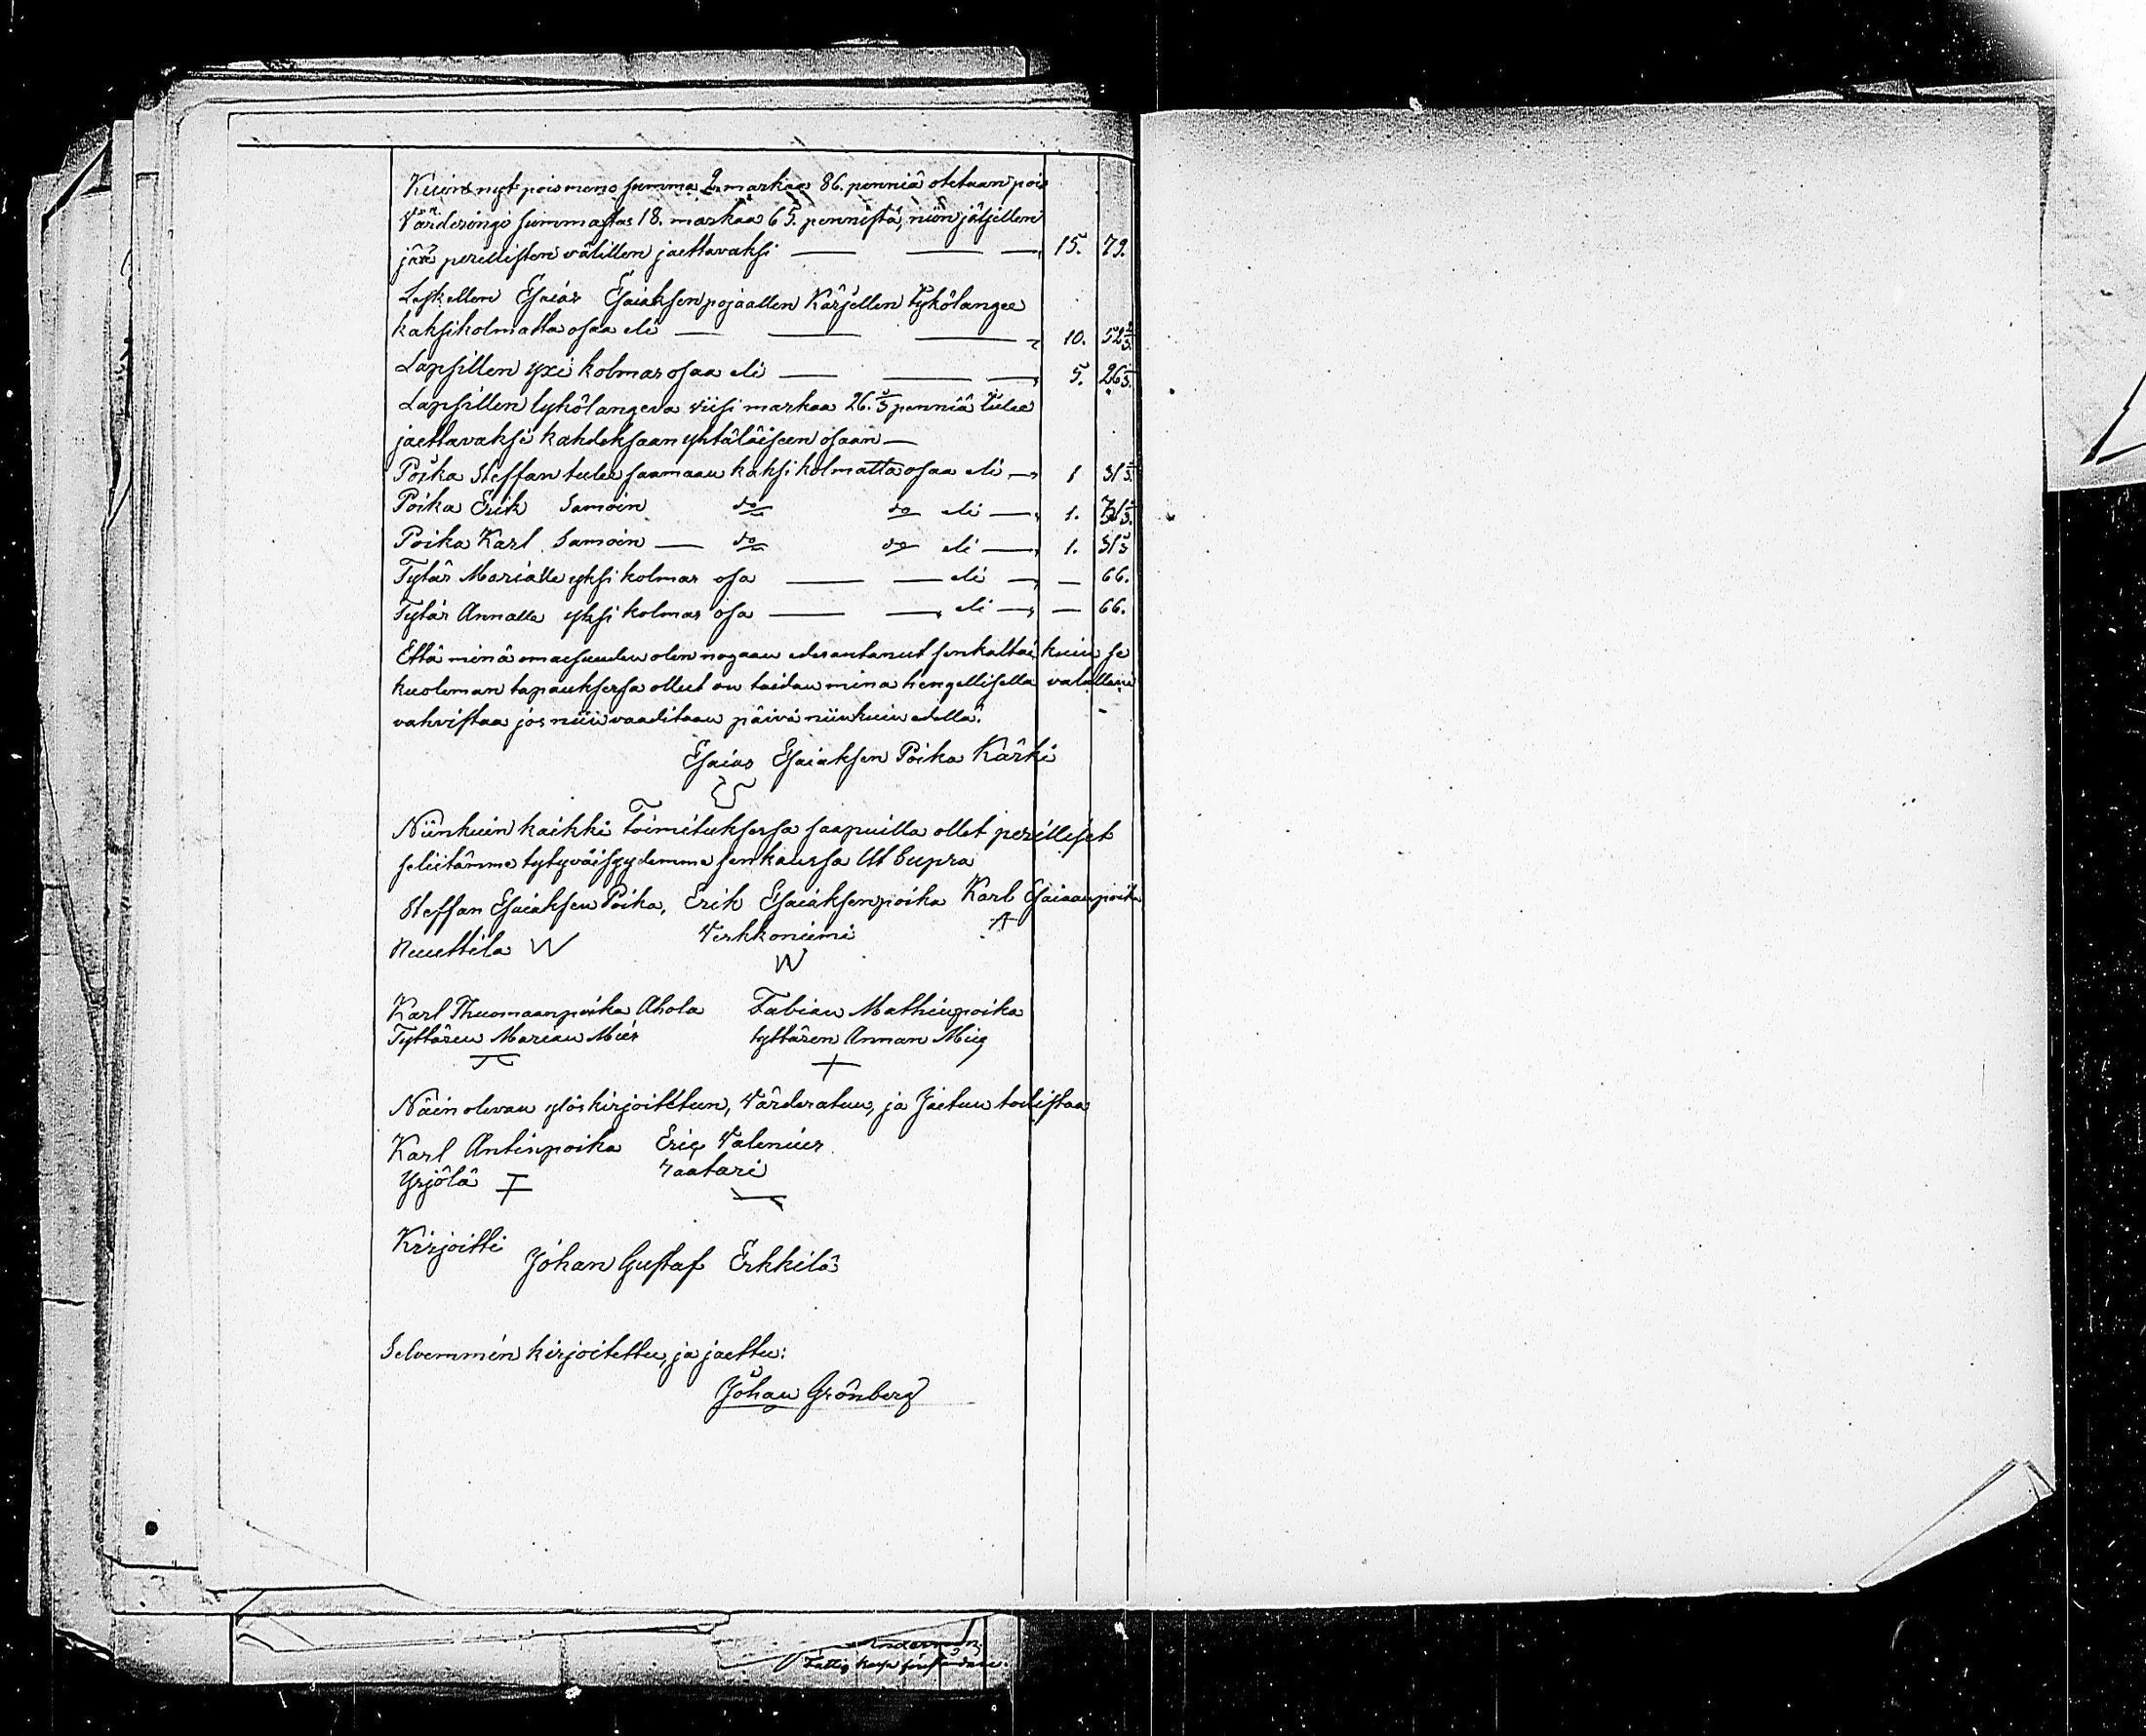 Kuin nyt poismeno summa 2. markaa 86. penniä otetaan pois
Värderingi summastas 18. markaa 65. pennistä, niin jätsellen
jää perillisten välillen jaettavaksi — — — 15. 79.
Leskellen Esaias Esaiaksenpojaallen Kärjellen tykölangee
kaksikolmatta osaa eli — — — 10. 52 2/3.
Lapsillen yxi kolmas osaa eli — — — 5. 26 1/3.
Lapsillen tykölangeva viisi markaa 26. 1/3 penniä tulee
jaettavaksi kahdeksaan yhtäläiseen osaan —
Poika Steffan tulee saamaan kaksikolmatta osaa eli — 1 31 2/3
Poika Erik Samoin do do eli — 1. 31 2/3.
Poika Karl Samoin — do do eli — 1. 31 2/3
Tytär Marialle yksi kolmas osa — — eli — — 66.
Tytär Annalle yksi kolmas osa — — eli — — 66.
Että minä omaisuuden olen nogaan edesantanut senkaltai kuin se
kuoleman tapauksessa ollut on taidan minä hengellisellä valallani
vahvistaa jos niin vaaditaan päivä niinkuin edellä.
Esaias Esaiaksen Poika Kärki
Niinkuin kaikki Toimituksessa saapuilla ollet perilliset
seliitämme tytyväisyydemme sen kanssa Ut Supra
Steffan Esaiaksen Poika, Erik Esaiaksenpoika Karl Esaiaanpoika
Nuuttila W Verkkoniemi A
W
Karl Thuomaanpoika Ahola Fabian Mathinpoika
Tyttären Marian Mies tyttären Annan Mies
+
Näin olevan ylöskirjoitetun, Värderatun, ja Jaetun todistaa
Karl Antinpoika Eric Valenius
Yrjölä raatari
Kirjoitti Johan Gustaf Erkkilä
Selvemmin kirjoitettu, ja jaettu:
Johan Grönberg